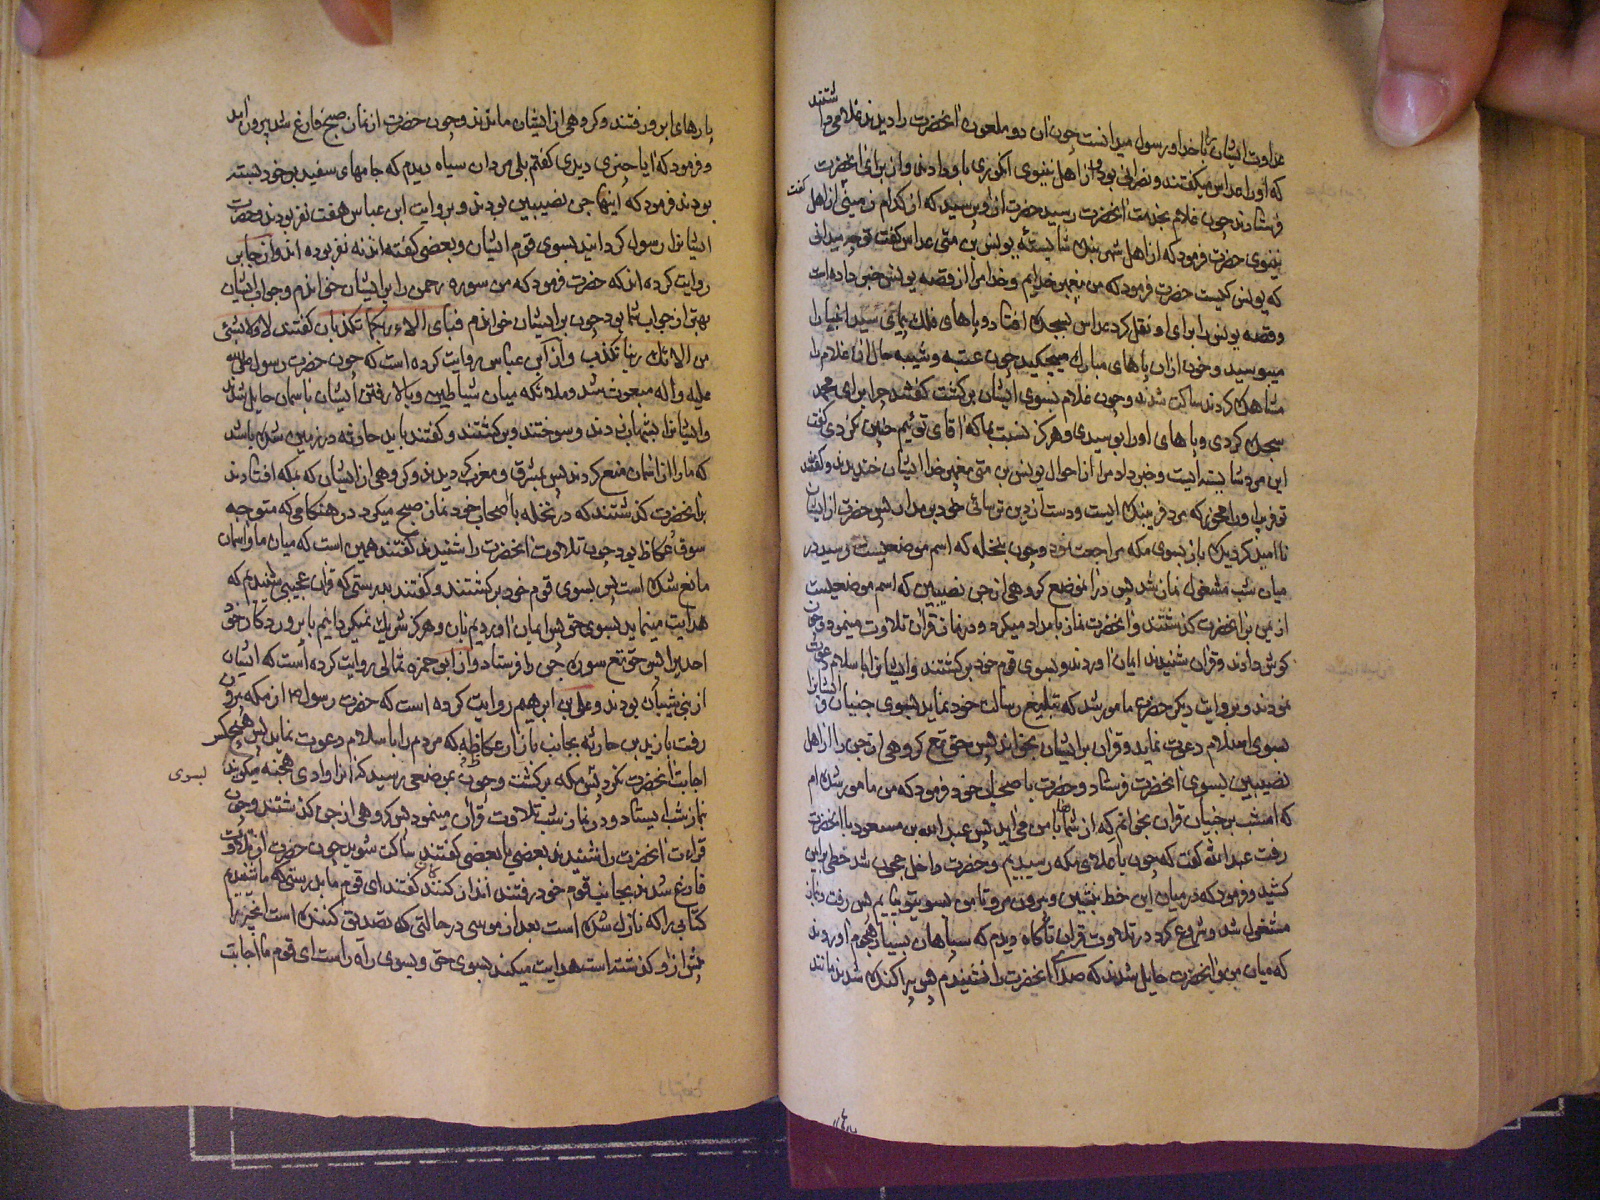 عداوت ایشان را با خدا و رسول میدانست چون آن دو ملعون آنحضرت را دیدند غلامی داشتند
که او را عداس میگفتند و نصرانی بود از اهل نینوی انگوری باو دادند و از برای آنحضرت
فرستادند چون غلام بخدمت آنحضرت رسید حضرت از او پرسید که از کدام زمینی گفت از اهل
نینوی حضرت فرمود که از اهل شهر بنده شایسته یونس بن متی عداس گفت تو چه میدانی
که یونس کیست حضرت فرمود که من پیغمبر خدایم و خدا مرا از قصه یونس خبر داده است
و قصه یونس را برای او نقل کرد عداس بسجده افتاد و پاهای فلک پیمای سید انبیا را
میبوسید و خون از آن پاهای مبارک میچکید چون عتبه و شیبه حال آن غلام را
مشاهده کردند ساکت شدند و چون غلام بسوی ایشان برگشت گفتند چرا برای محمد
سجده کردی و پاهای او را بوسیدی و هرگز نسبت بما که آقای توئیم چنین نکردی گفت
این مرد شایسته ایست و خبر داد مرا از احوال یونس بن متی پیغمبر خدا ایشان خندیدند و گفتند
تو فریب او را مخور که مرد فریبنده ایست و دست از دین ترسائی خود برمدار پس حضرت از ایشان
ناامید گردیده باز بسوی مکه مراجعت نمود و چون بنخله که اسم موضعیست رسید در
میان شب مشغول نماز شد پس در آن موضع گروهی از جن نصیبین که اسم موضعیست
از یمن بر آنحضرت گذشتند و آنحضرت نماز بامداد میکرد و در نماز قرآن تلاوت مینمود چون
گوش دادند و قرآن شنیدند ایمان آوردند و بسوی قوم خود برگشتند و ایشانرا باسلام دعوت
نمودند و بروایت دیگر حضرت مامور شد که تبلیغ رسالت خود نماید بسوی جنیان و ایشانرا
بسوی اسلام دعوت نماید و قرآن بر ایشان بخواند پس حق تع گروهی از جن را از اهل
نصیبین بسوی آنحضرت فرستاد و حضرت با اصحاب خود فرمود که من مامور شده ام
که امشب بر جنیان قرآن بخوانم که از شما با من می آید پس عبد الله بن مسعود با آنحضرت
رفت عبد الله گفت که چون باعلای مکه رسیدیم و حضرت داخل حجون شد خطی برای من
کشید و فرمود که در میان این خط بنشین و بیرون مرو تا من بسوی تو بیایم پس رفت و بنماز
مشغول شد و شروع کرد در تلاوت قرآن ناگاه دیدم که سیاهان بسیار هجوم آوردند
که میان من و آنحضرت حایل شدند که صدای آنحضرت را نشنیدم پس پراکنده شدند مانند
پارهای ابر و رفتند و گروهی از ایشان ماندند و چون حضرت از نماز صبح فارغ شد بیرون آمد
و فرمود که آیا چیزی دیدی گفتم بلی مردان سیاه دیدم که جامهای سفید بر خود بسته
بودند فرمود که اینها جن نصیبین بودند و بروایت ابن عباس هفت نفر بودند و حضرت
ایشانرا رسول گردانید بسوی قوم ایشان و بعضی گفته اند نه نفر بوده اند و از جابر
روایت کرده اند که حضرت فرمود که من سوره رحمن را بر ایشان خواندم و جواب ایشان
بهتر از جواب شما بود چون بر ایشان خواندم فبای الاء ربکما تکذبان گفتند لا ولا بشیء
من الائک ربنا نکذب و از ابن عباس روایت کرده است که چون حضرت رسول صلی الله
علیه و آله مبعوث شد و ملائکه میان شیاطین و بالا رفتن ایشان باسمان حایل شدند
و ایشانرا بشهابها زدند و سوختند و برگشتند و گفتند باید حادثه در زمین شده باشد
که ما را از آسمان منع کردند پس بمشرق و مغرب گردیدند و گروهی از ایشان که بمکه افتادند
بر آنحضرت گذشتند که در نخله با اصحاب خود نماز صبح میکرد در هنگامی که متوجه
سوق عکاظ بود چون تلاوت آنحضرت را شنیدند گفتند همین است که میان ما و آسمان
مانع شده است پس بسوی قوم خود برگشتند و گفتند بدرستی که قرآن عجیبی شنیدیم که
هدایت مینماید بسوی حق پس ایمان آوردیم بآن و هرگز شریک نمیگردانیم با پروردگار خود
احدیرا پس حق تع سوره جن را فرستاد و از ابو حمزه ثمالی روایت کرده است که ایشان
از بنی شیبان بودند و علی بن ابراهیم روایت کرده است که حضرت رسول ص از مکه بیرون
رفت با زید بن حارثه بجانب بازار عکاظ که مردم را باسلام دعوت نماید پس هیچکس
اجابت آنحضرت نکرد پس بسوی مکه برگشت و چون بموضعی رسید که آنرا وادی مجنه میگویند
بنماز شب ایستاد و در نماز شب تلاوت قرآن مینمود پس گروهی از جن گذشتند و چون
قراءت آنحضرت را شنیدند بعضی با بعضی گفتند ساکت شوید چون حضرت از تلاوت
فارغ شد بجانب قوم خود رفتند انذار کننده گفتند ای قوم ما بدرستی که ما شنیدیم
کتابی را که نازل شده است بعد از موسی در حالتی که تصدیق کننده است آنچیز را
پیش از او گذشته است هدایت میکند بسوی حق و بسوی راه راست ای قوم ما اجابت